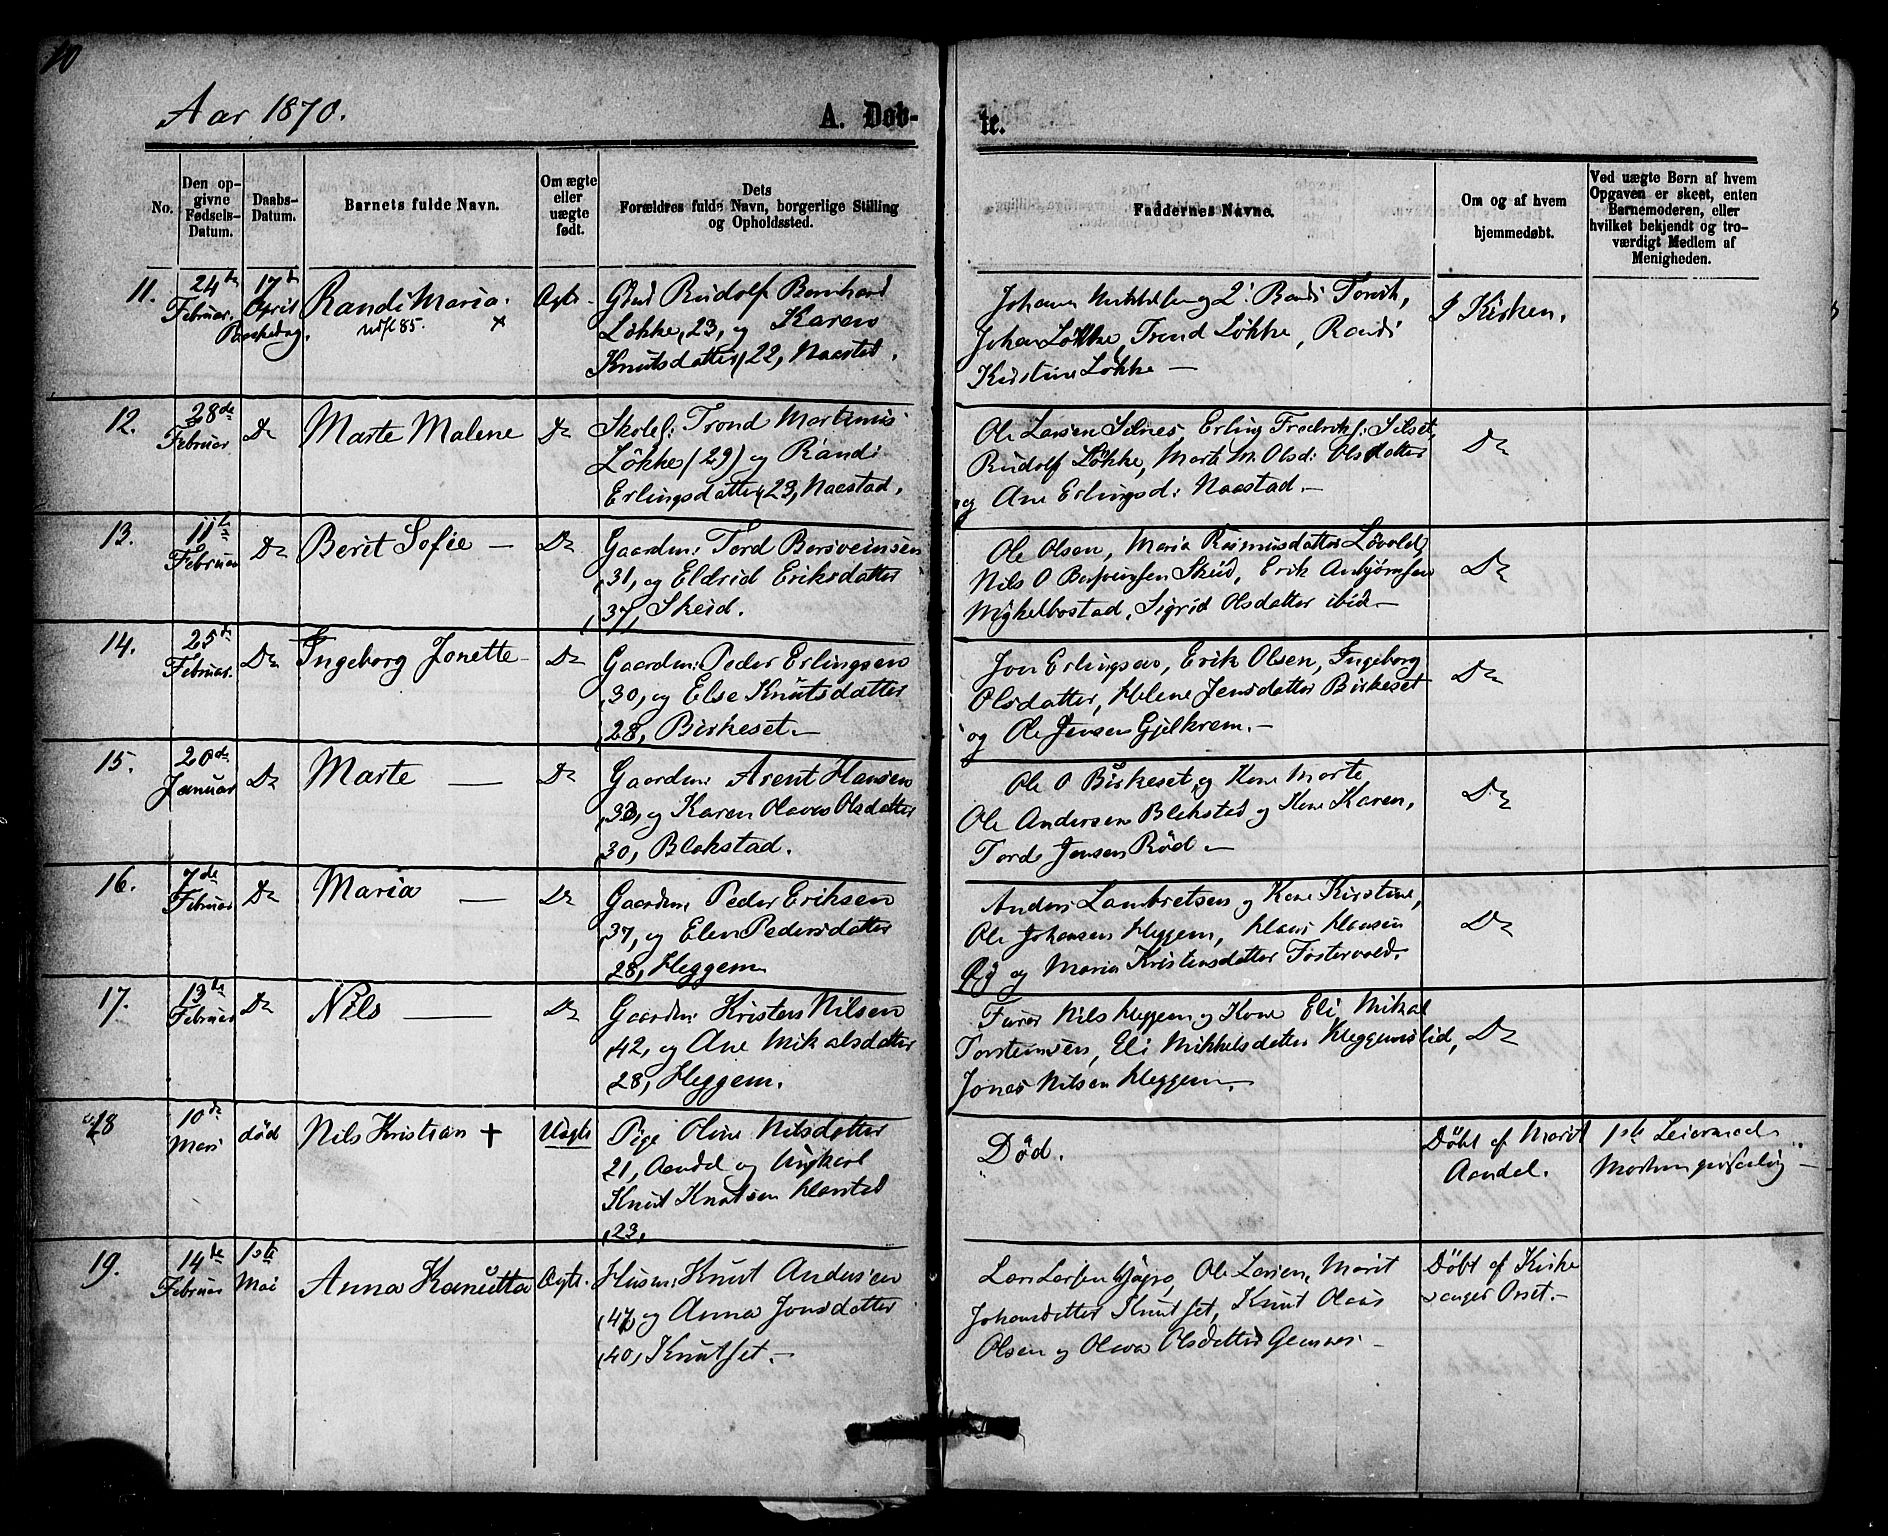 10
Aar 1870.
A. Døb-
te.
No.
Den op-
givne
Fødsels-
Datum.
Daabs-
Datum.
Barnets fulde Navn.
Om ægte
eller
uægte
født.
Dets
Forældres fulde Navn, borgerlige Stilling
og Opholdssted.
Faddernes Navne.
Om og af hvem
hjemmedøbt.
Ved uægte Børn af hvem
Opgaven er skeet, enten
Barnemoderen, eller
hvilket bekjendt og tro-
værdigt Medlem af
Menigheden.
11.
24de
Februar.
17de
April
Paaskedag.
Randi Maria.
Ægte.
Rudolf Bernhard
Løkke, 23, og Karen
Knutsdatter, 22, Naastad.
Johan Løkke, Trond Løkke, Randi
Kirstine Løkke —
I Kirken.
12.
28de
Februar
Do
Marte Malene
Do
Skolel: Trond Martinus
Løkke (29) og Randi
Erlingsdatter, 23, Naastad.
Ole Larsen Silnes, Erling Fredriks: Silset,
Rudolf Løkke, Marte M. Olsd: Olsdatter
og Ane Erlingsd: Naastad. —
Do
13.
11te
Februar
Do
Berit Sofie —
Do
Gaardm: Tord Bersveinsen
,31, og Eldrid Eriksdatter
,37, Skeid.
Ole Olsen, Maria Rasmusdatter Løvold,
Nils O Skeid, Erik Anbjørnsen
Myklebostad, Sigrid Olsdatter ibid —
Do
14.
25de
Februar.
Do
Ingeborg Jonette
Do
Gaardm: Peder Erlingsen
,30, og Else Knutsdatter
,28, Birkeset. —
Jon Erlingsen, Erik Olsen, Ingeborg
Olsdatter, Helene Jensdatter Birkeset
og Ole Jensen Gjelkrem. —
Do
15.
20de
Januar
Do
Marte —
Do
Gaardm: Arent Hansen
,33, og Karen Olava Olsdatter
,30, Blekstad.
Ole O Birkeset, og Kone Marte
Ole Andersen Blekstad og Kone Karen,
Tord Jensen Rød. —
Do
16.
7de
Februar
Do
Maria —
Do
Gaardm: Peder Eriksen
,37, og Elen Pedersdatter
,28, Heggem
Anders Lambretsen og Kone Kirstine,
Ole Johansen Heggem, Hans Hansen
og Maria Kristensdatter Fostervold.
Do
17.
13de
Februar
Do
Nils —
Do
Gaardm: Kristen Nilsen
,42, og Ane Mikalsdatter
,28, Heggem.
Nils Heggem og Kone Eli, Mikal
Torsteinsen, Eli Mikkelsdatter Heggemslid,
Jonas Nilsen Heggem. —
Do
18
10de
Mars
død
Nils Kristian +
Uægte
Pige Oline Nilsdatter
21, Aandal og Ungkarl
Knut Knutsen Harstad
,23,
Død.
Døbt af Marit
Aandal.
1ste Leiermaal
19.
14de
Februar
1ste
Mai
Anna Kanutta
Ægte.
Husm: Knut Andersen
,47, og Anna Jonsdatter
,40, Knutset. —
Lars Larsen, Ole Larsen, Marit
Johansdatter Knutset, Knut Olaus
Olsen og Olava Olsdatter
Døbt af Kirke
sanger Orset. —